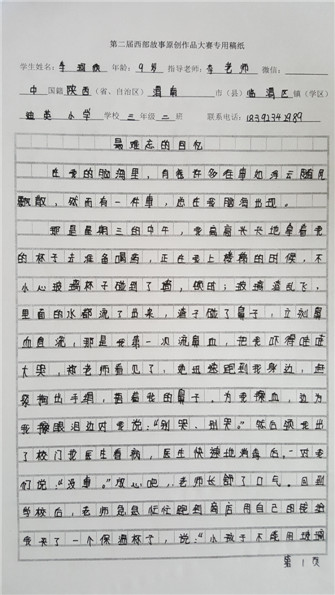 第二届西部故事原创作品大赛专用稿纸
学生姓名:李 年龄:9岁 指导老师:李老师 微信:
中国籍陕西(省、自治区)渭南市(县)临渭区镇(学区)
学校三年级二班 联系电话:
最难忘的回忆
在我的脑海里,有着许多往事如浮云随风
飘散,然而有一件事,总在我脑海出现。
那是星期三的中午,我高高兴兴地拿着我
的杯子去准备喝水,正在我上楼梯的时候,不
小心玻璃杯子碰到了墙,顿时,玻璃渣乱飞,
里面的水都流了出来,渣子碰了鼻子,立刻鼻
血直流,那是我第一次流鼻血,把我吓得哇哇
大哭,被老师看见了,急忙跑到我身边,赶
紧掏出手绢,捂着我的鼻子。为我擦血,边为
我擦眼泪边对我说:“别哭,别哭。”然后领我出
了校门找医生看病,医生快速地消毒后。对我
们说:“没事。”放心吧,老师长舒了口气。回到
学校后,老师急急忙忙跑到商店用自己的钱给
我买了一个保温杯子,说:“小孩子不能用玻璃
第1页